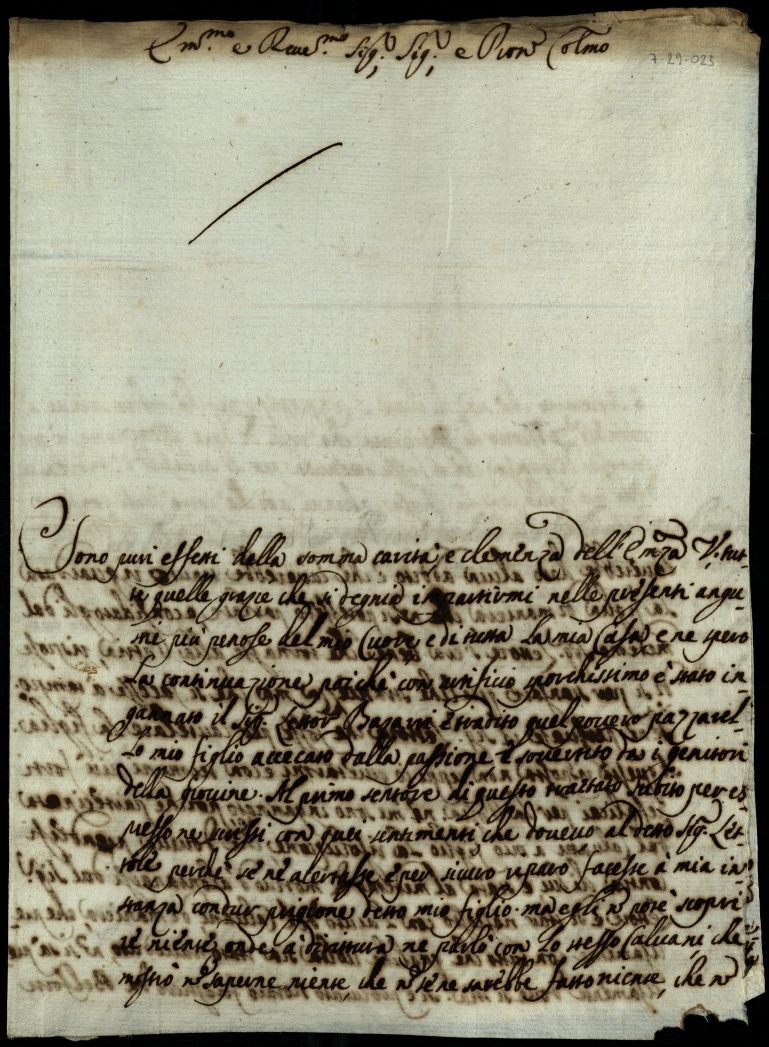 Em.mo e Reue.mo Sig.r Sig.r e Pron Colmo
7-29-023
Sono puri effetti della somma carità e clemenza dell'Emza V. tut-
te quelle grazie che si degnia impartirmi nelle presenti angu-
stie più penose del mio Cuore e di tutta la mia Casa e ne spero
la continuazione poiche con artificio sporchissimo è stato in-
gannato il Sig. Lettor Bazarri e tradito quel povero pazzarel-
lo mio figlio accecato dalla passione e sovertito da i genitori
della giovine. Al primo sentore di questo trattato subito per es
presso ne scrissi con quei sentimenti che dovevo al detto Sig. Let-
tore perche se ne alertasse e per sicuro riparo facesse à mia in-
stanza condur prigione detto mio figlio. ma egli n potè scopri
re niente, onde a dirittura ne parlò con lo stesso Calvani, che
mostrò n saperne niente, che n se ne sarebbe fatto niente, che n